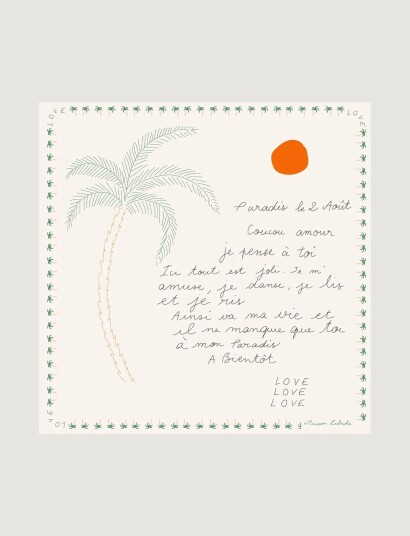 LOVE
LOVE
Paradis le 2 Août
Coucou amour
je pense à toi
Ici tout est joli. Je m'
amuse, je danse, je lis
et je ris
Ainsi va ma vie et
il ne manque que toi
à mon Paradis
A Bientôt
LOVE
LOVE
LOVE
LOVE
Maison Labiche